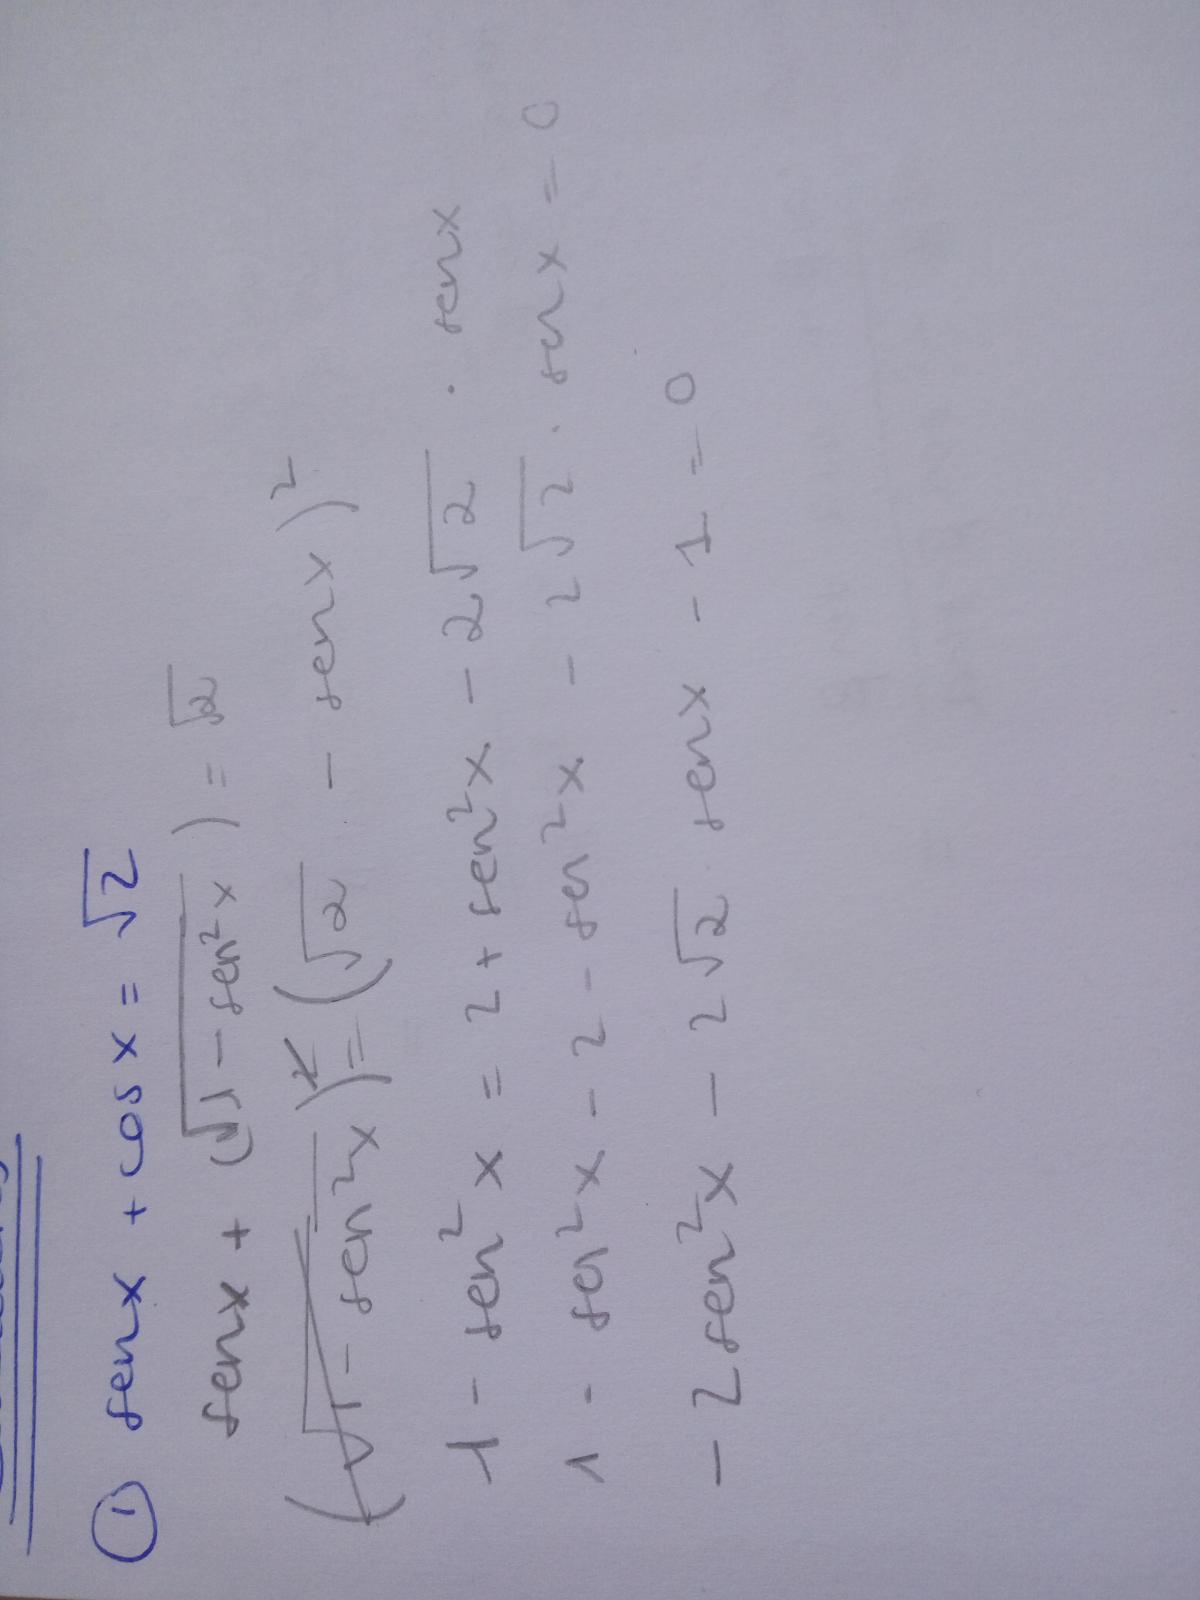 ① senx + cosx = √2
senx + (√1-sen²x) = √2
(√1-sen²x)² = (√2 - senx)²
1 - sen²x = 2 + sen²x - 2√2 · senx
1 - sen²x - 2 - sen²x - 2√2 · senx = 0
-2sen²x - 2√2 · senx - 1 = 0